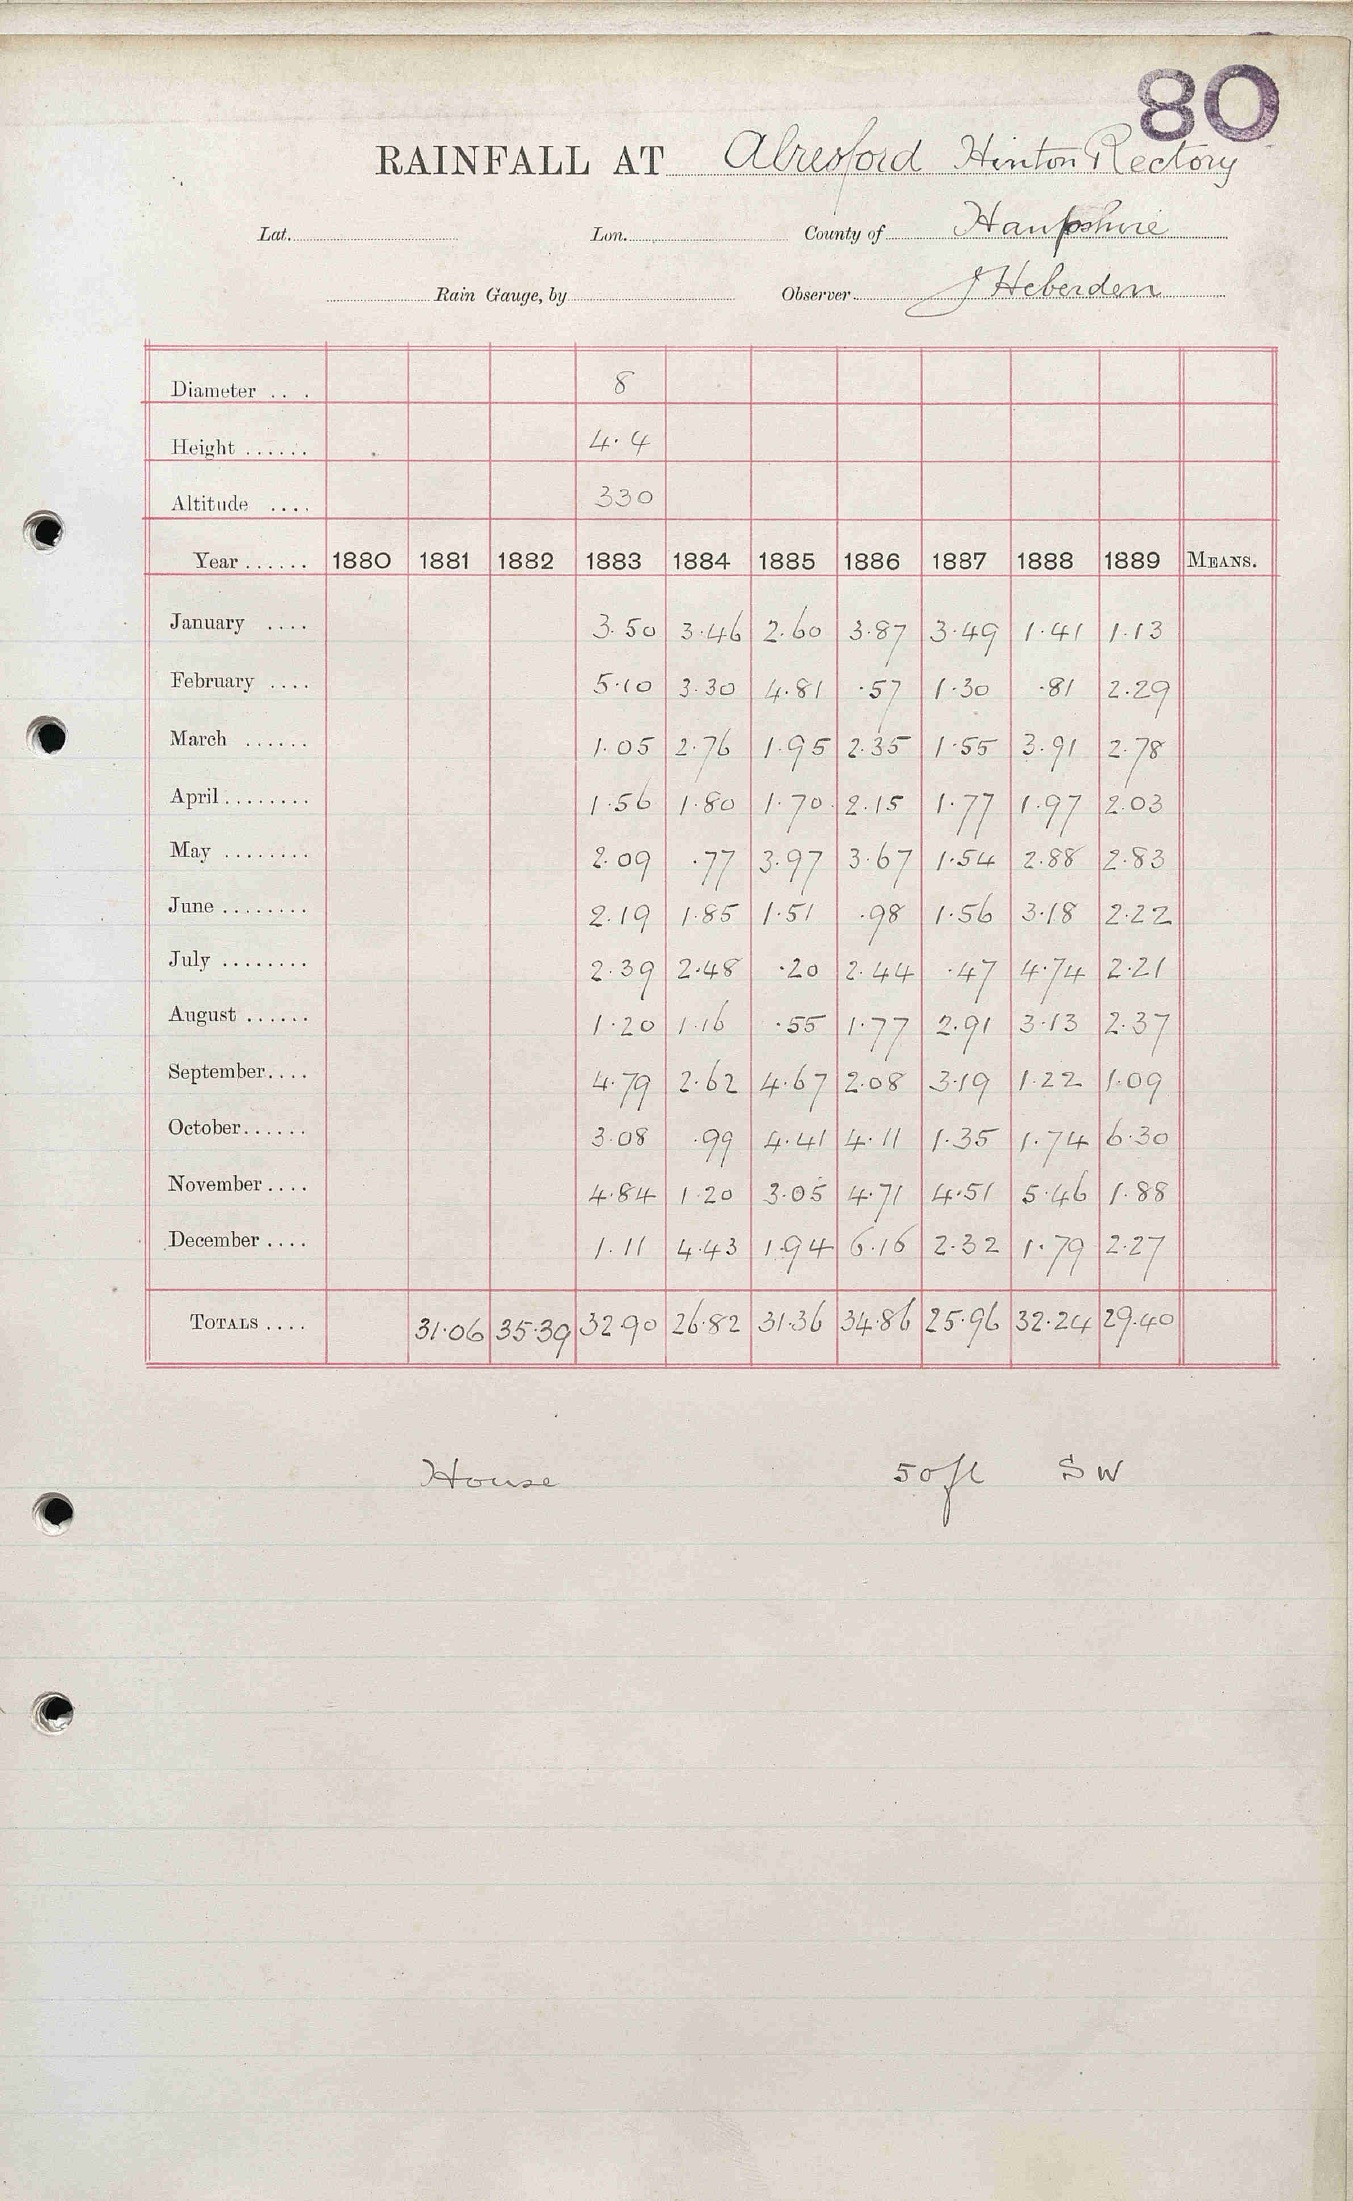 80
RAINFALL AT Alresford Hinton Rectory
Lat. Lon. County of Hampshire
Rain Gauge, by Observer J Heberden
Diameter .... 8
Height ...... 4·4
Altitude .... 330
Year ...... 1880 1881 1882 1883 1884 1885 1886 1887 1888 1889 MEANS.
January .... 3.50 3.46 2.60 3.87 3.49 1.41 1.13
February .... 5.10 3.30 4.81 .57 1.30 .81 2.29
March ...... 1.05 2.76 1.95 2.35 1.55 3.91 2.78
April ........ 1.56 1.80 1.70 2.15 1.77 1.97 2.03
May ........ 2.09 .77 3.97 3.67 1.54 2.88 2.83
June ........ 2.19 1.85 1.51 .98 1.56 3.18 2.22
July ........ 2.39 2.48 .20 2.44 .47 4.74 2.21
August ...... 1.20 1.16 .55 1.77 2.91 3.13 2.37
September.... 4.79 2.62 4.67 2.08 3.19 1.22 1.09
October...... 3.08 .99 4.41 4.11 1.35 1.74 6.30
November.... 4.84 1.20 3.05 4.71 4.51 5.46 1.88
December .... 1.11 4.43 1.94 6.16 2.32 1.79 2.27
TOTALS .... 31.06 35.39 32.90 26.82 31.36 34.86 25.96 32.24 29.40
House 50ft SW